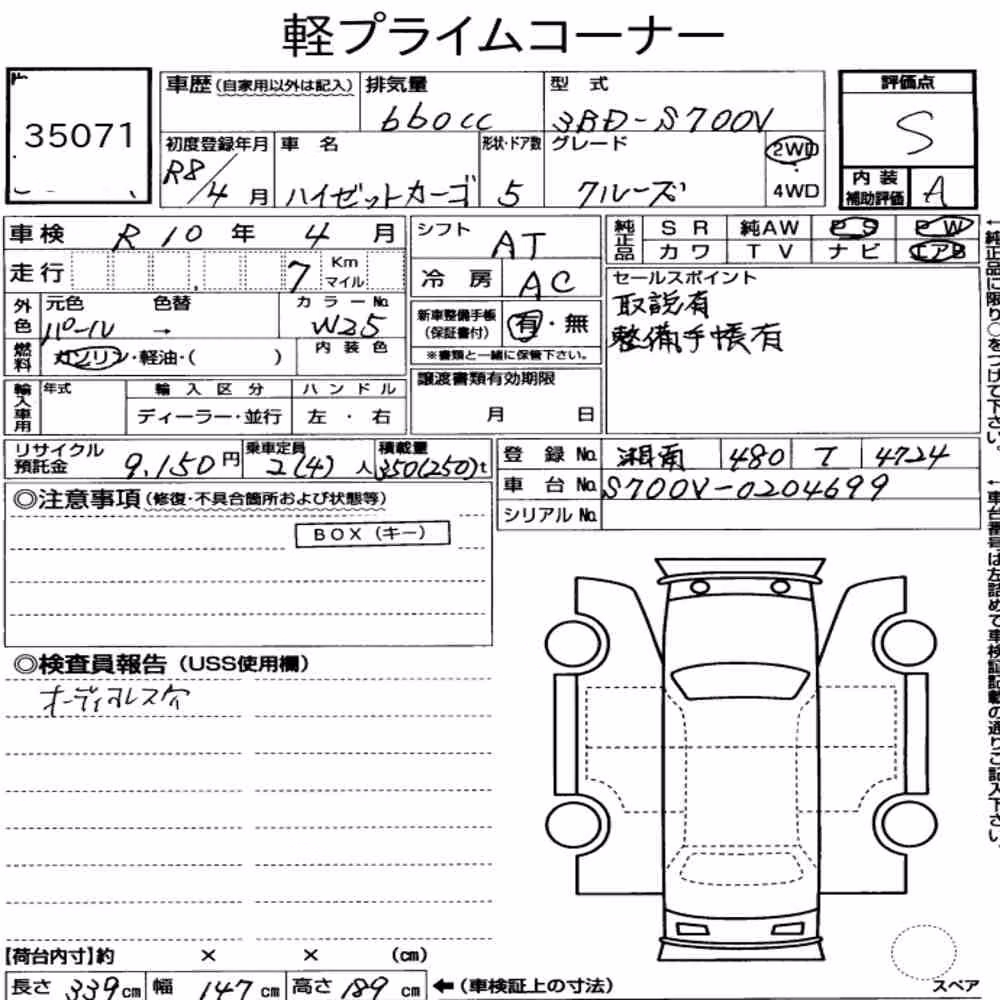 軽プライムコーナー
35071
車歴(自家用以外は記入)
排気量
660cc
型式
3BD-S700V
評価点
S
内装補助評価
A
初度登録年月
R8/4月
車名
ハイゼットカーゴ
形状・ドア数
5
グレード
クルーズ
2WD
4WD
車検 R10年 4月
走行 7 Km マイル
シフト
AT
冷房 AC
純正品 SR 純AW PS PW
カワ TV ナビ エアB
セールスポイント
取説有
整備手帳有
外色 元色 色替 カラーNo.
パール → W25
燃料 ガソリン・軽油・( )
内装色
新車整備手帳(保証書付) 有・無
※書類と一緒に保管下さい。
輸入車用 年式 輸入区分 ハンドル
ディーラー・並行 左・右
譲渡書類有効期限
月 日
リサイクル預託金 9,150円
乗車定員 2(4)人
積載量 350(250)t
登録No. 湘南 480 T 4724
車台No. S700V-0204699
シリアルNo.
◎注意事項(修復・不具合箇所および状態等)
BOX(キー)
◎検査員報告(USS使用欄)
オーディオレス穴
【荷台内寸】約 × × (cm)
長さ 339cm 幅 147cm 高さ 189cm ←(車検証上の寸法)
スペア
←純正品に限り○をつけて下さい。
←車台番号は左詰めで車検証記載の通りご記入下さい。